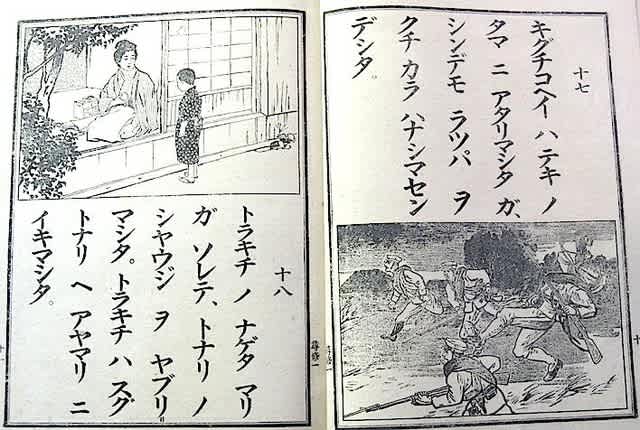 十七
キグチコヘイ ハ テキ ノ
タマ ニ アタリマシタ ガ、
シンデモ ラッパ ヲ
クチ カラ ハナシマセン
デシタ。
十八
トラキチ ノ ナゲタ マリ
ガ ソレテ、トナリ ノ
シヤウジ ヲ ヤブリ
マシタ。トラキチ ハ スグ
トナリ ヘ アヤマリ ニ
イキマシタ。